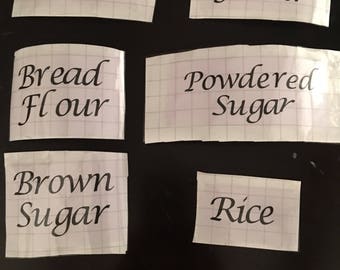 Bread
Flour
Powdered
Sugar
Brown
Sugar
Rice